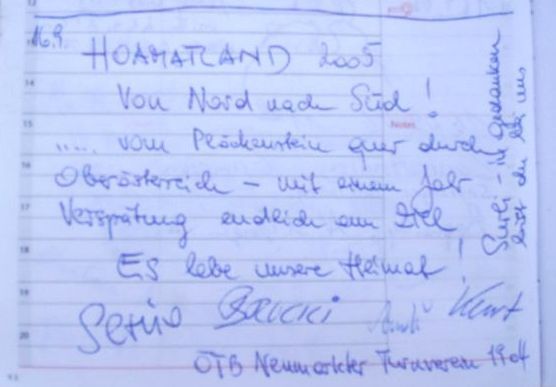 16.9.
HOAMATLAND 2005
Von Nord nach Süd!
..... vom Plöckenstein quer durch
Oberösterreich – mit einem Jahr
Verspätung endlich am Ziel
Es lebe unsere Heimat!
Kurt
ÖTB Neumarkter Turnverein 1904
- in Gedanken
bist du bei uns
14
15
16
17
18
19
20
Notes